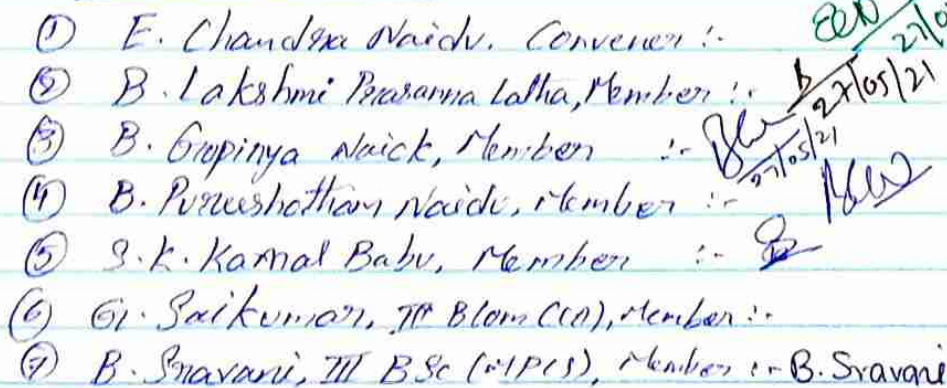 ① E. Chandra Naidu. Convener :-
② B. Lakshmi Prasanna Latha, Member :- 27/05/21
③ B. Gopinya Naick, Member :- 27/05/21
④ B. Purushotham Naidu, Member :-
⑤ S.K. Kamal Babu, Member :-
⑥ G. Saikumar, III BCom (CA), Member :-
⑦ B. Sravani, III BSc (MPCS), Member :- B. Sravani